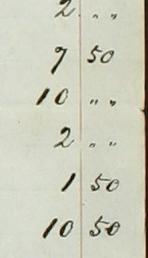 2 " "
7 50
10 " "
2 " "
1 50
10 50